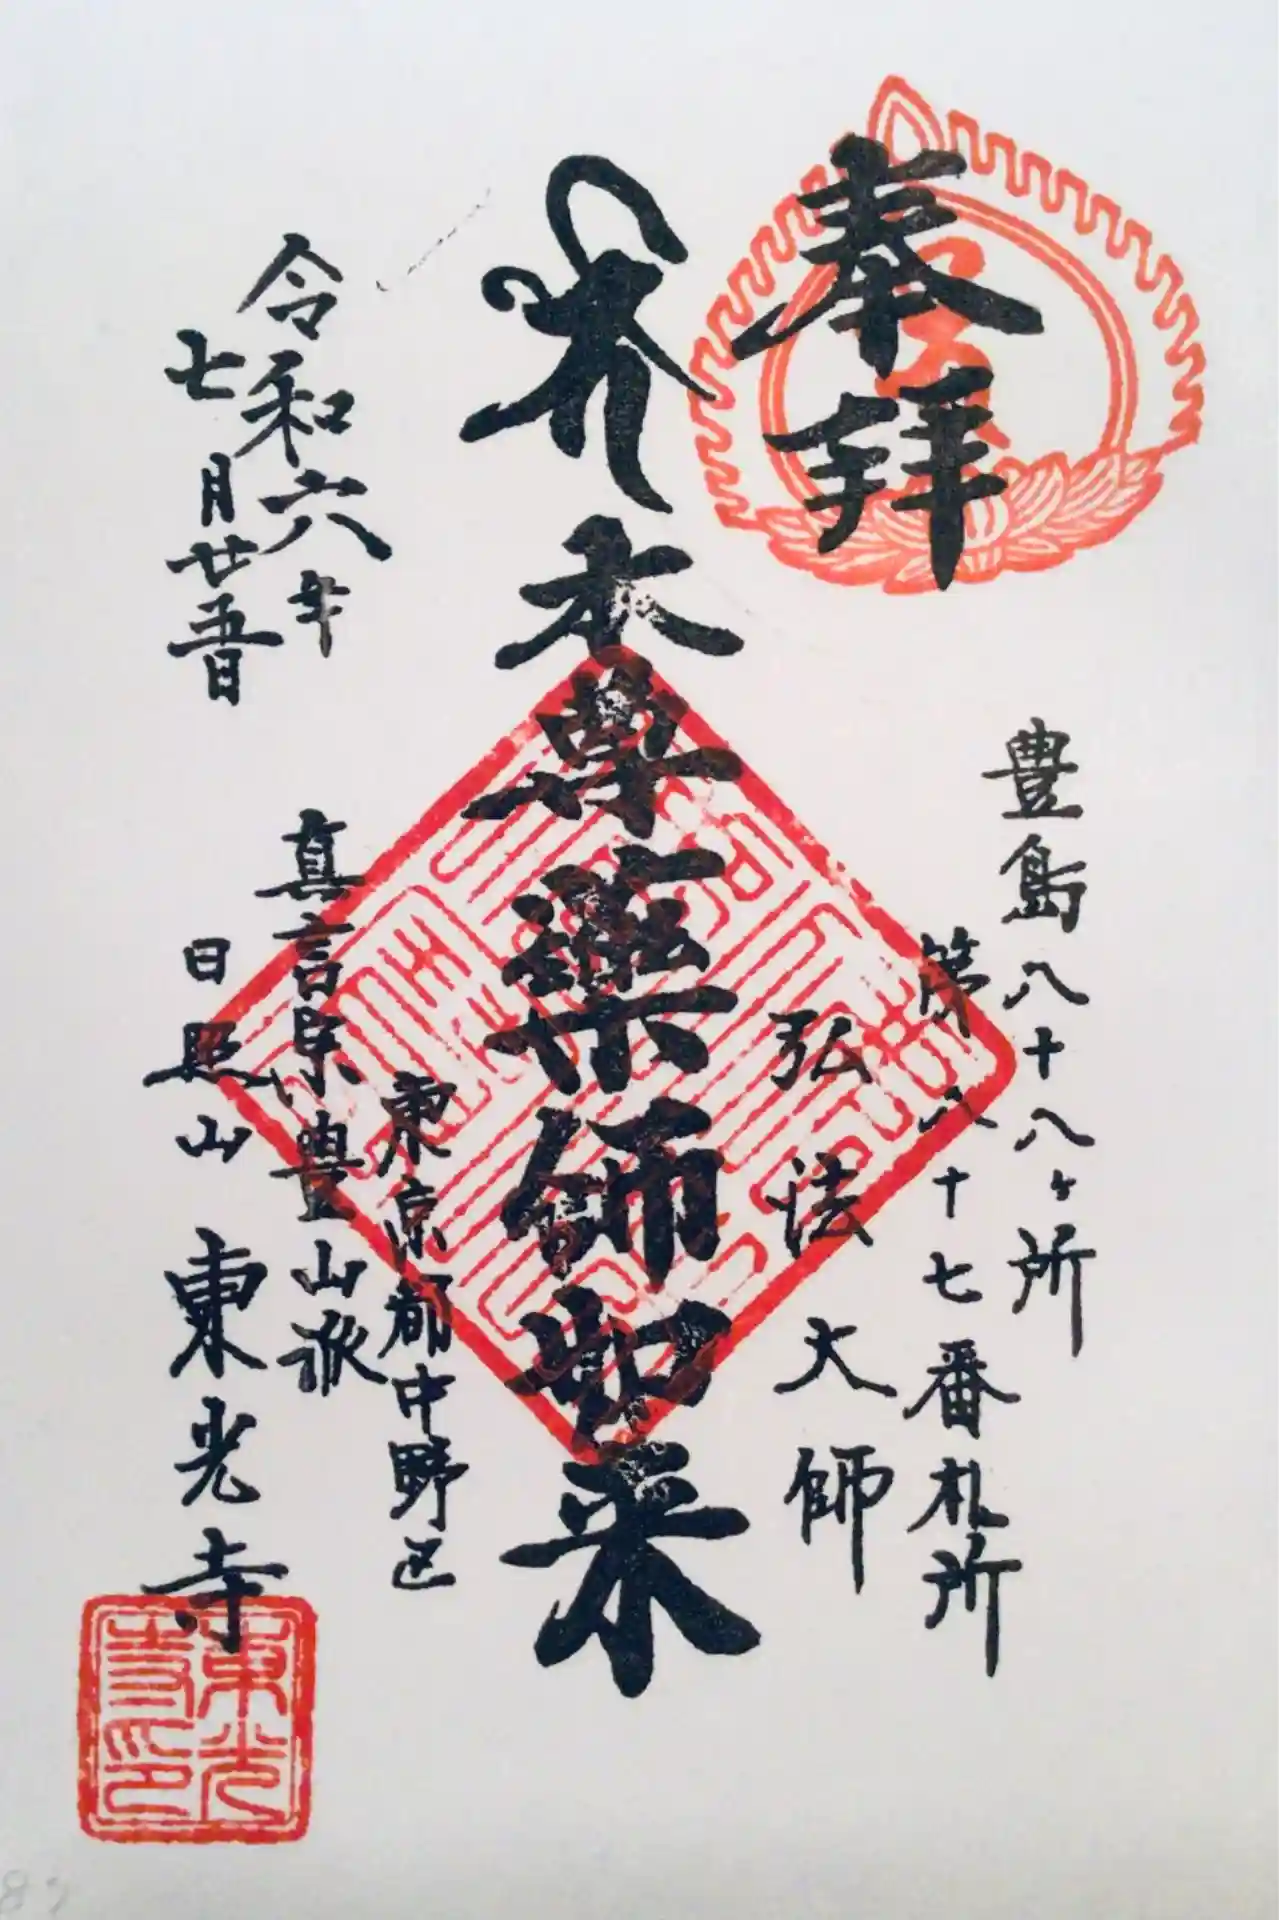 奉拝
豊島八十八ヶ所
第八十七番札所
弘法大師
本尊藥師如来
東京都中野区
令和六年
七月廿五日
真言宗豊山派
日照山 東光寺
東光寺印